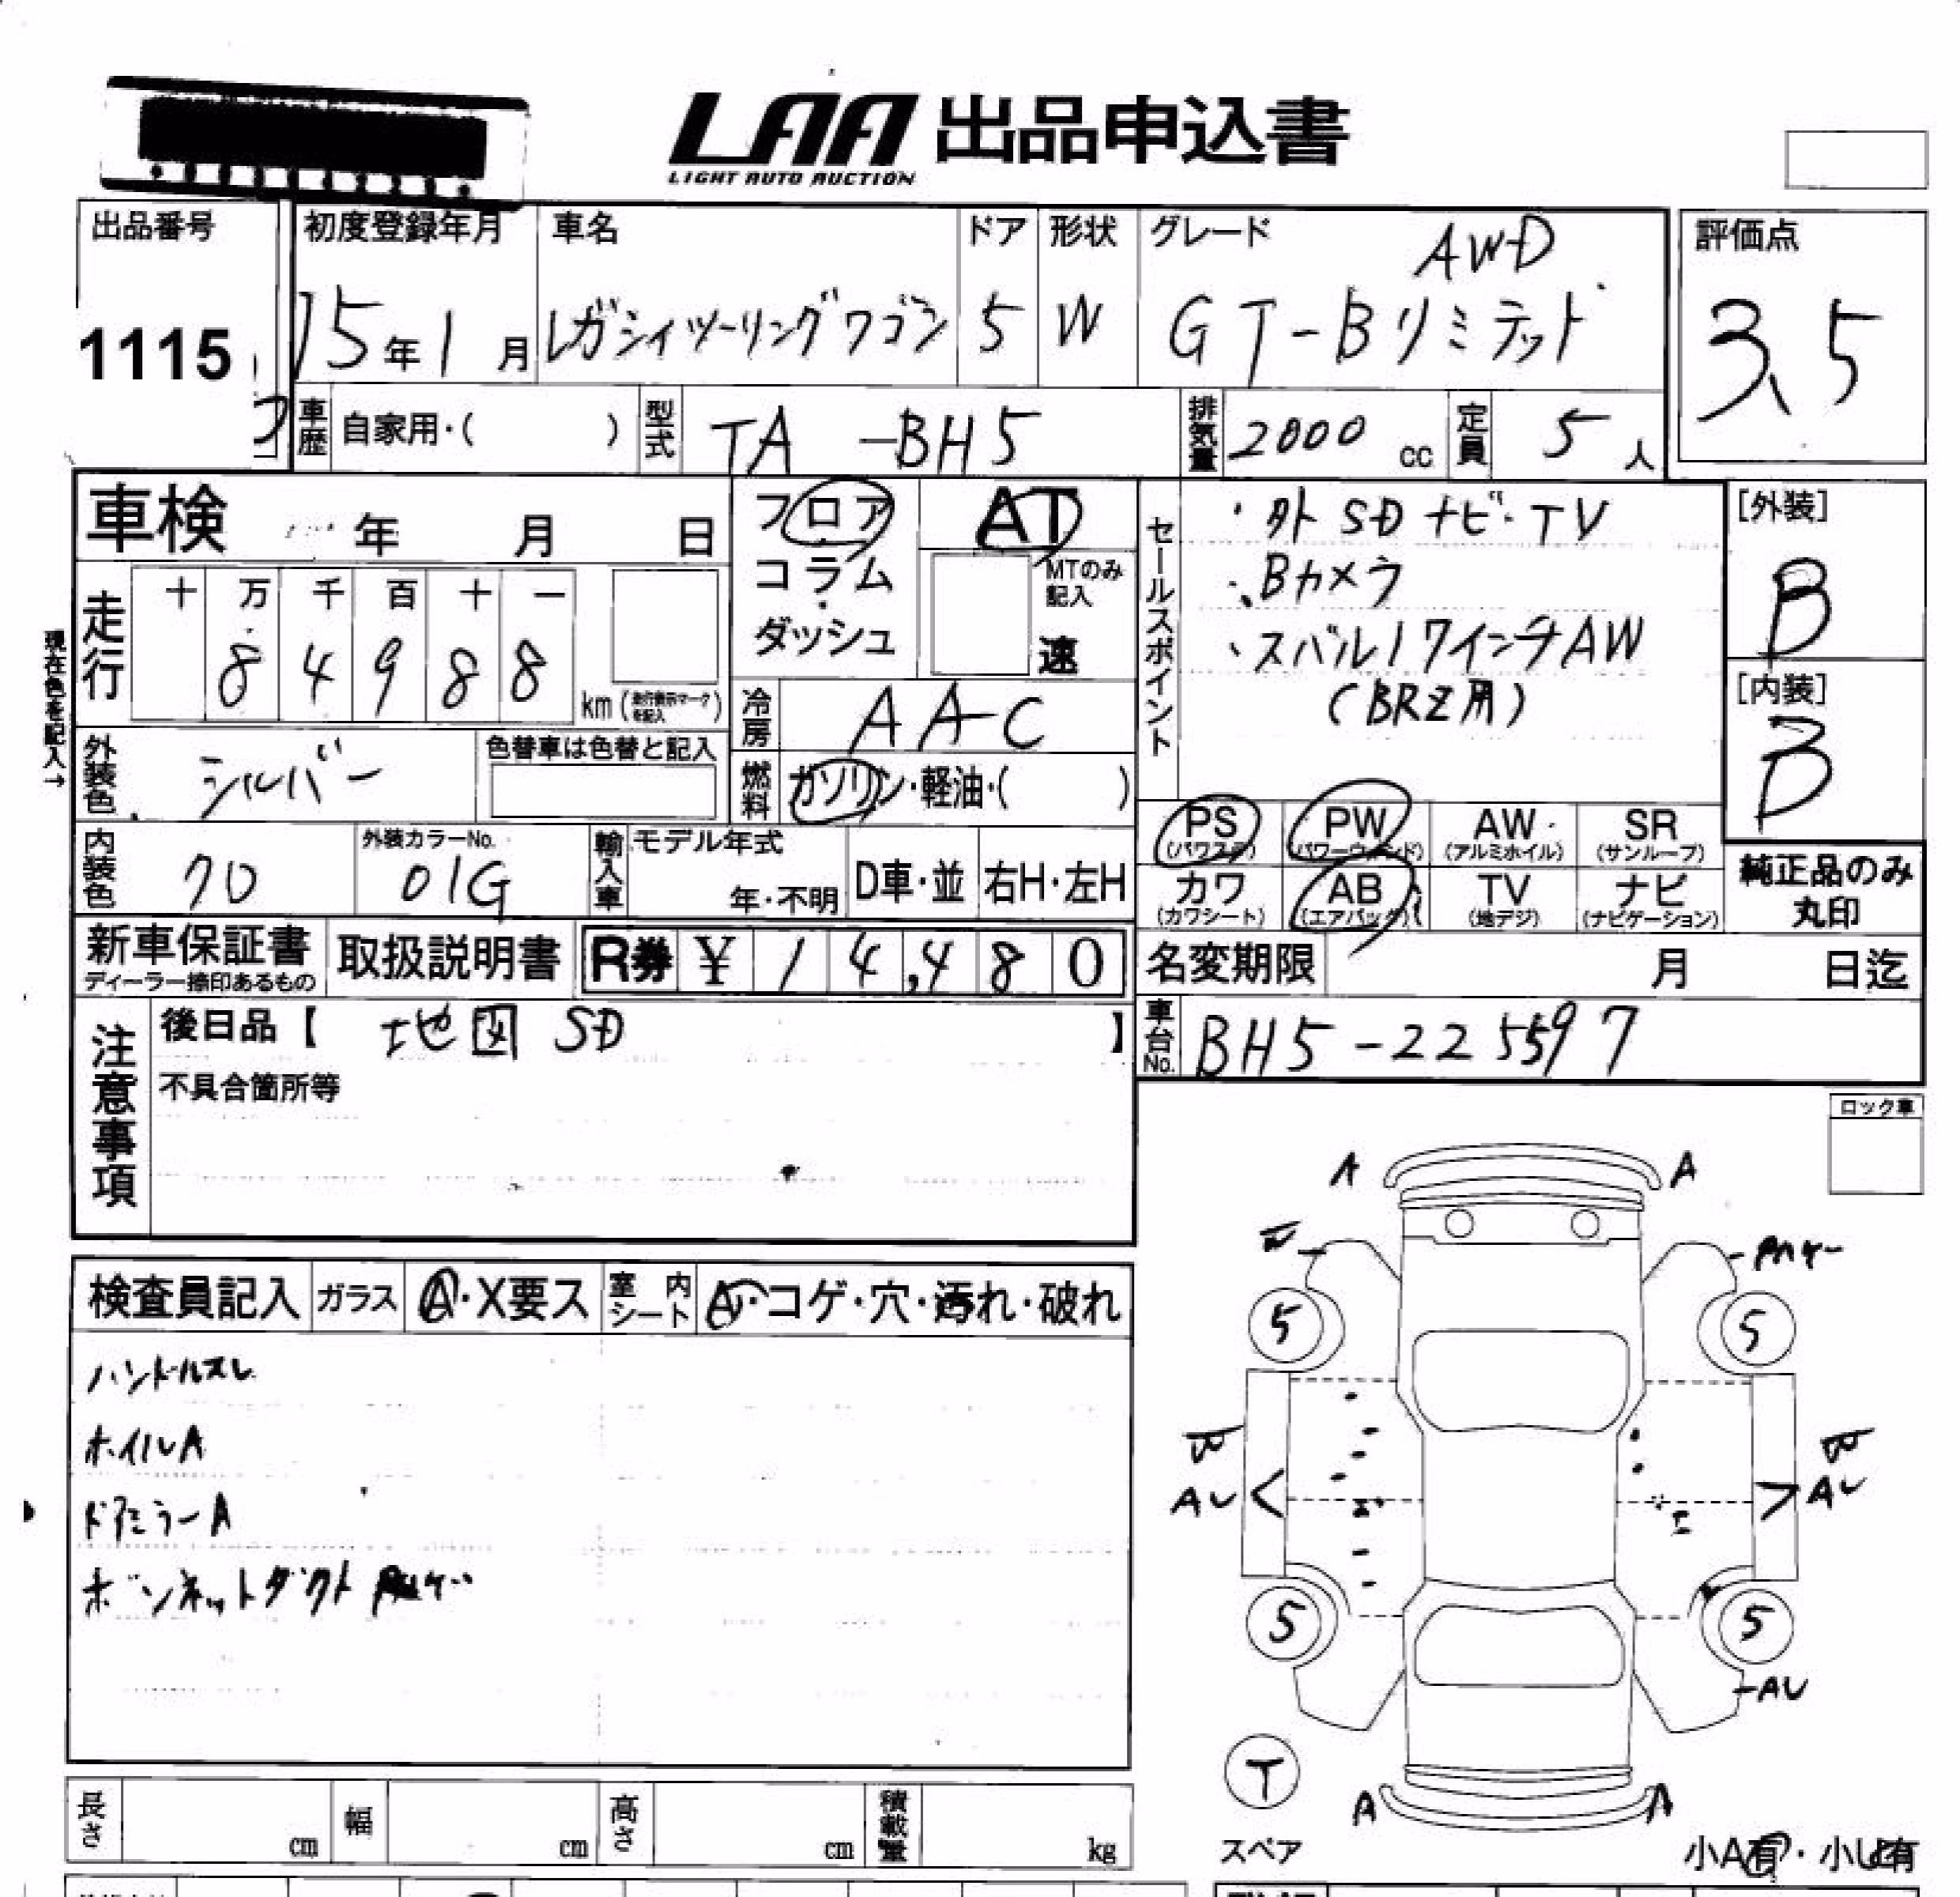 LAA 出品申込書
LIGHT AUTO AUCTION
出品番号 初度登録年月 車名 ドア 形状 グレード 評価点
AWD
1115 15年1月 レガシィツーリングワゴン 5 W GT-Bリミテッド 3.5
車歴 自家用・( ) 型式 TA -BH5 排気量 2000 cc 定員 5 人
車検 年 月 日 フロア AT
コラム MTのみ記入
ダッシュ 速
セールスポイント
・外SDナビ・TV
・Bカメラ
・スバル17インチAW
(BRZ用)
[外装]
B
[内装]
B
走行 十 万 千 百 十 一
8 4 9 8 8 km (走行表示マークを記入)
現在色を記入→
冷房 AAC
外装色 シルバー 色替車は色替と記入
燃料 ガソリン・軽油・( )
PS (パワステ) PW (パワーウィンド) AW (アルミホイル) SR (サンルーフ)
カワ (カワシート) AB (エアバック) TV (地デジ) ナビ (ナビゲーション)
純正品のみ
丸印
内装色 クロ 外装カラーNo. 01G 輸入車 モデル年式 年・不明 D車・並 右H・左H
新車保証書 取扱説明書 R券 ¥ 14,480 名変期限 月 日迄
ディーラー捺印あるもの
注意事項
後日品【 地図SD 】
車台No. BH5-225597
不具合箇所等
ロック車
検査員記入 ガラス A・X要ス 室内シート A・コゲ・穴・汚れ・破れ
ハンドルスレ
ホイルA
ドアミラーA
ボンネットダクト
A A
5 5
AU AU
5 5
AU
T
A A
スペア
小A有・小U有
長さ cm 幅 cm 高さ cm 積載量 kg